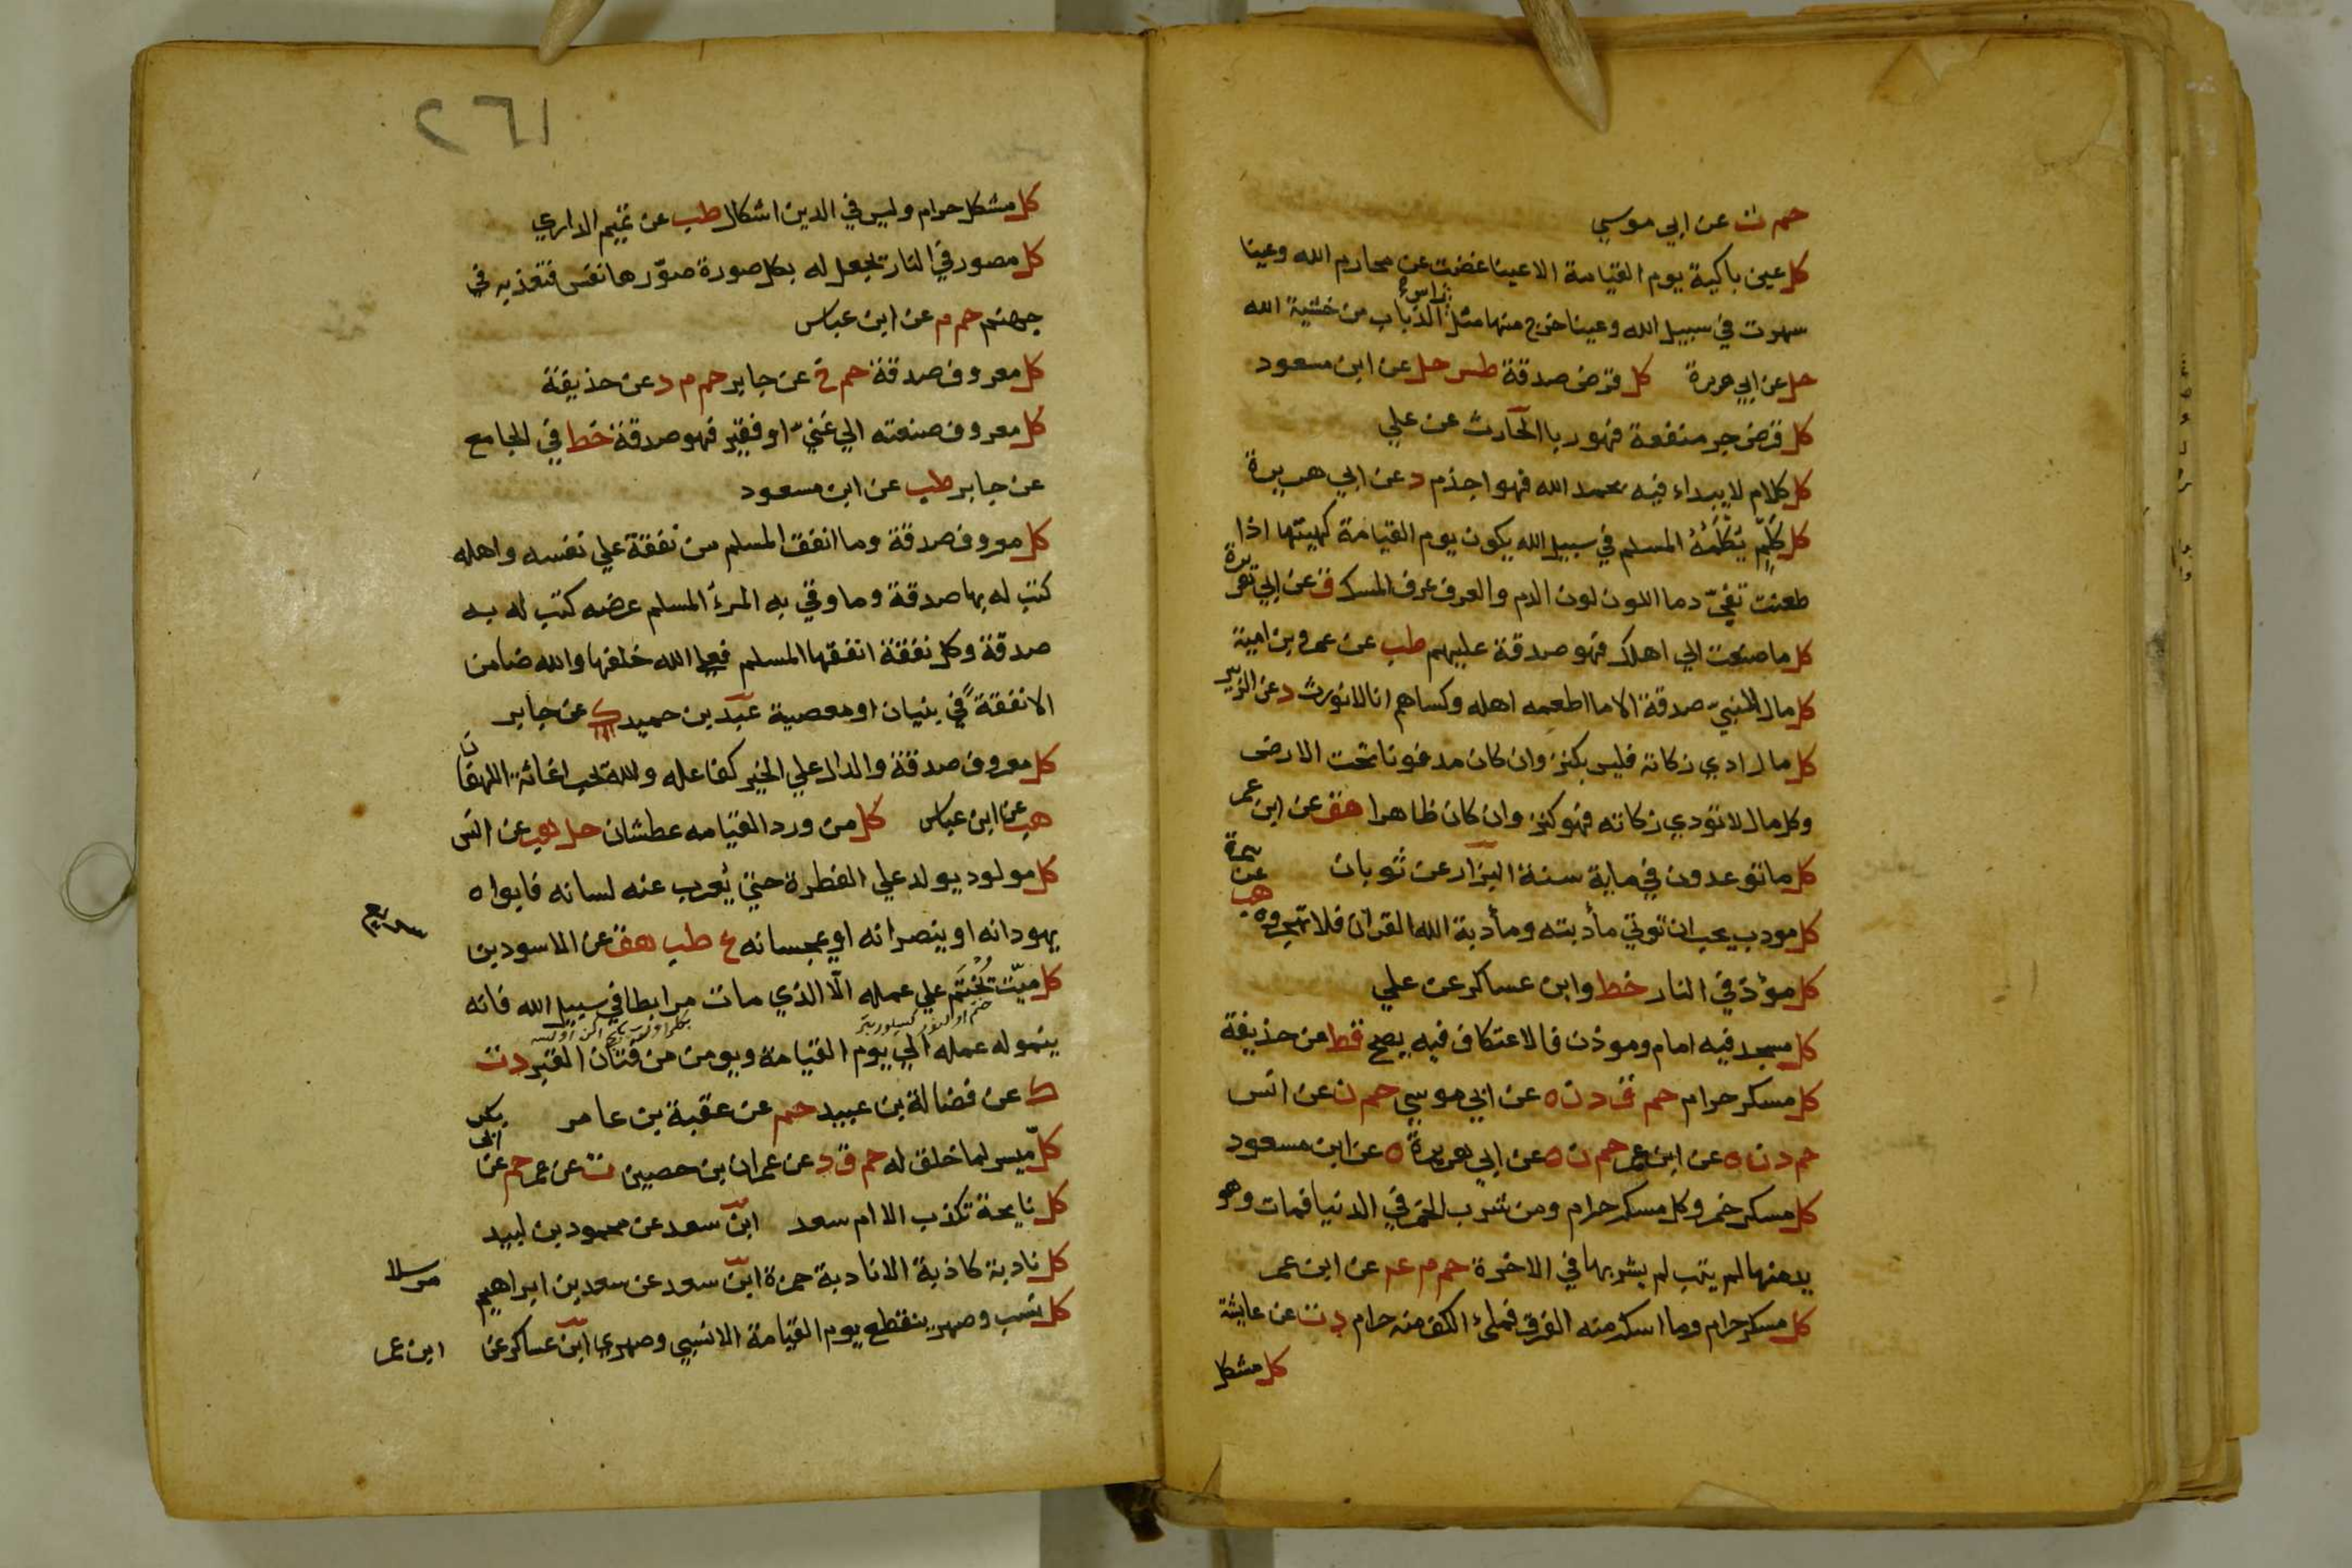 حم ت عن ابي موسي
كل عين باكية يوم القيامة الا عينا غضت عن محارم الله وعينا
سهرت في سبيل الله وعينا خرج منها مثل راس الذباب من خشية الله
حل عن ابي هريرة كل قرض صدقة طس حل عن ابن مسعود
كل قرض جر منفعة فهو ربا الحارث عن علي
كل كلام لا يبداء فيه بحمد الله فهو اجذم د عن ابي هريرة
كل كَلْمٍ يُكْلَمُهُ المسلم في سبيل الله يكون يوم القيامة كهيئتها اذا
طعنت تفجّر دما اللون لون الدم والعرف عرف المسك ق عن ابي هريرة
كل ما صنعت الي اهلك فهو صدقة عليهم طب عن عمرو بن امية
كل مال النبيّ صدقة الا ما اطعمه اهله وكساهم انا لا نورث د عن الزبير
كل مال ادي زكاته فليس بكنز وان كان مدفونا تحت الارض
وكل مال لا تؤدي زكاته فهو كنز وان كان ظاهرا هق عن ابن عمر
كل ما توعدون في ماية سنة البزار عن ثوبان
كل مودب يحب ان توتي مأدبته ومأدبة الله القرآن فلا تهجروه هب عن سمرة
كل مؤذ في النار خط وابن عساكر عن علي
كل مسجد فيه امام وموذن فالاعتكاف فيه يصح قط عن حذيفة
كل مسكر حرام حم ق د ن ه عن ابي موسي حم ن عن انس
حم د ن ه عن ابن عمر حم ن ه عن ابي هريرة ه عن ابن مسعود
كل مسكر خمر وكل مسكر حرام ومن شرب الخمر في الدنيا فمات وهو
يدمنها لم يتب لم يشربها في الاخرة حم م عم عن ابن عمر
كل مسكر حرام وما اسكر منه الفرق فملئ الكف منه حرام د ت عن عايشة
كل مشكل
٢٦١
كل مشكل حرام وليس في الدين اشكال طب عن تميم الداري
كل مصور في النار يجعل له بكل صورة صوّرها نفس فتعذبه في
جهنم حم م عن ابن عباس
كل معروف صدقة حم خ عن جابر حم م د عن حذيفة
كل معروف صنعته الي غنيّ او فقير فهو صدقة خط في الجامع
عن جابر طب عن ابن مسعود
كل معروف صدقة وما انفق المسلم من نفقة علي نفسه واهله
كتب له بها صدقة وما وقي به المرء المسلم عرضه كتب له به
صدقة وكل نفقة انفقها المسلم فعلي الله خلفها والله ضامن
الا نفقة في بنيان او معصية عبد بن حميد ك عن جابر
كل معروف صدقة والدال علي الخير كفاعله والله يحب اغاثة اللهفان
هب عن ابن عباس كل من ورد القيامه عطشان حل هب عن انس
كل مولود يولد علي الفطرة حتي يُعرب عنه لسانه فابواه
يهودانه او ينصرانه او يمجسانه ع طب هق عن الاسود بن
سريع
كل ميّت يُخْتَم علي عمله الّا الذي مات مرابطا في سبيل الله فانه
ينمو له عمله الي يوم القيامة ويومن من فتان القبر د ت
ك عن فضالة بن عبيد حم عن عقبة بن عامر
كلّ ميسر لما خلق له حم ق د عن عمران بن حصين ت عن عمر حم عن ابي بكر
كل نايحة تكذب الا ام سعد ابن سعد عن محمود بن لبيد
كل نادبة كاذبة الا نادبة حمزة ابن سعد عن سعد بن ابراهيم
مرسلا
كل نسب وصهر ينقطع يوم القيامة الا نسبي وصهري ابن عساكر عن
ابن عمر